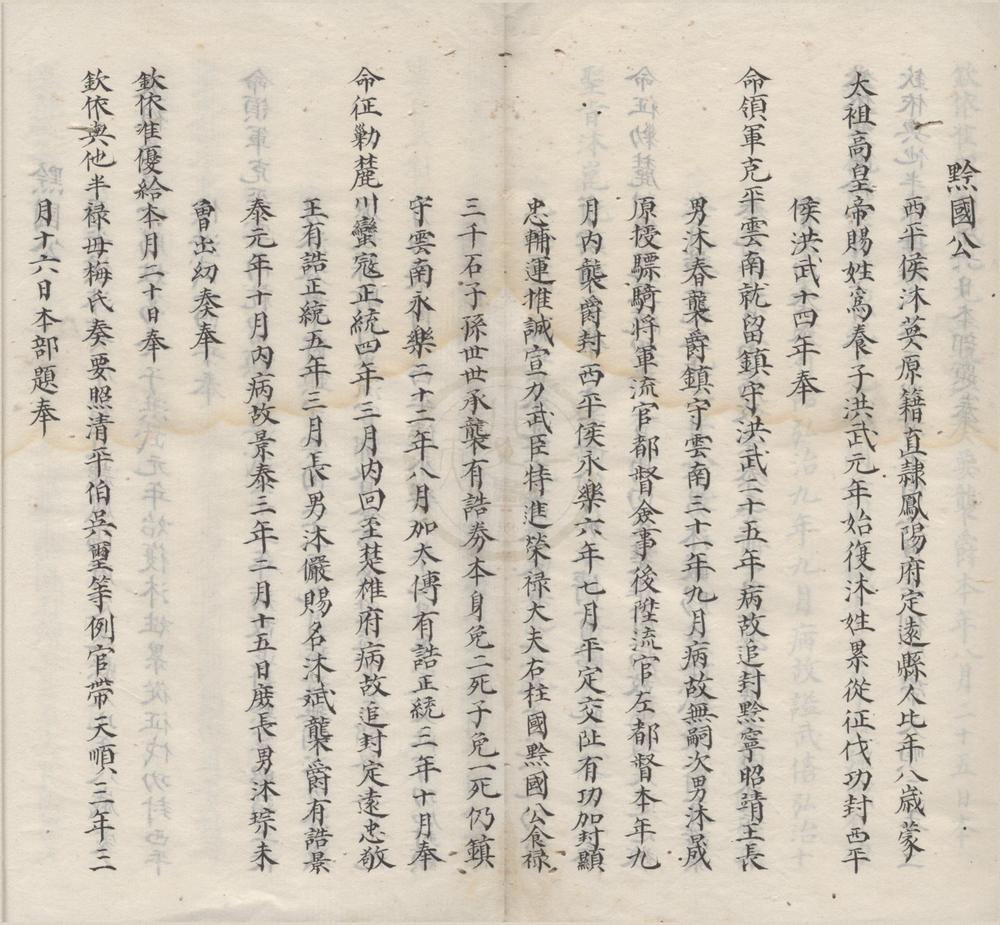 黔國公
西平侯沐英原籍直隸鳳陽府定遠縣人比年八歲蒙
太祖高皇帝賜姓為養子洪武元年始復沐姓累從征伐功封西平
侯洪武十四年奉
命領軍克平雲南就留鎮守洪武二十五年病故追封黔寧昭靖王長
男沐春襲爵鎮守雲南三十一年九月病故無嗣次男沐晟
原授驃騎將軍流官都督僉事後陞流官左都督本年九
月內襲爵封西平侯永樂六年七月平定交阯有功加封顯
忠輔運推誠宣力武臣特進榮祿大夫右柱國黔國公食祿
三千石子孫世世承襲有誥券本身免二死子免一死仍鎮
守雲南永樂二十二年八月加太傅有誥正統三年十月奉
命征勦麓川蠻寇正統四年三月內回至楚雄府病故追封定遠忠敬
王有誥正統五年三月長男沐儼賜名沐斌襲爵有誥景
泰元年十月內病故景泰三年二月十五日庶長男沐琮未
曾出幼奏奉
欽依准優給本月二十日奉
欽依與他半祿毋梅氏奏要照清平伯吳璽等例官帶天順三年三
月十六日本部題奉